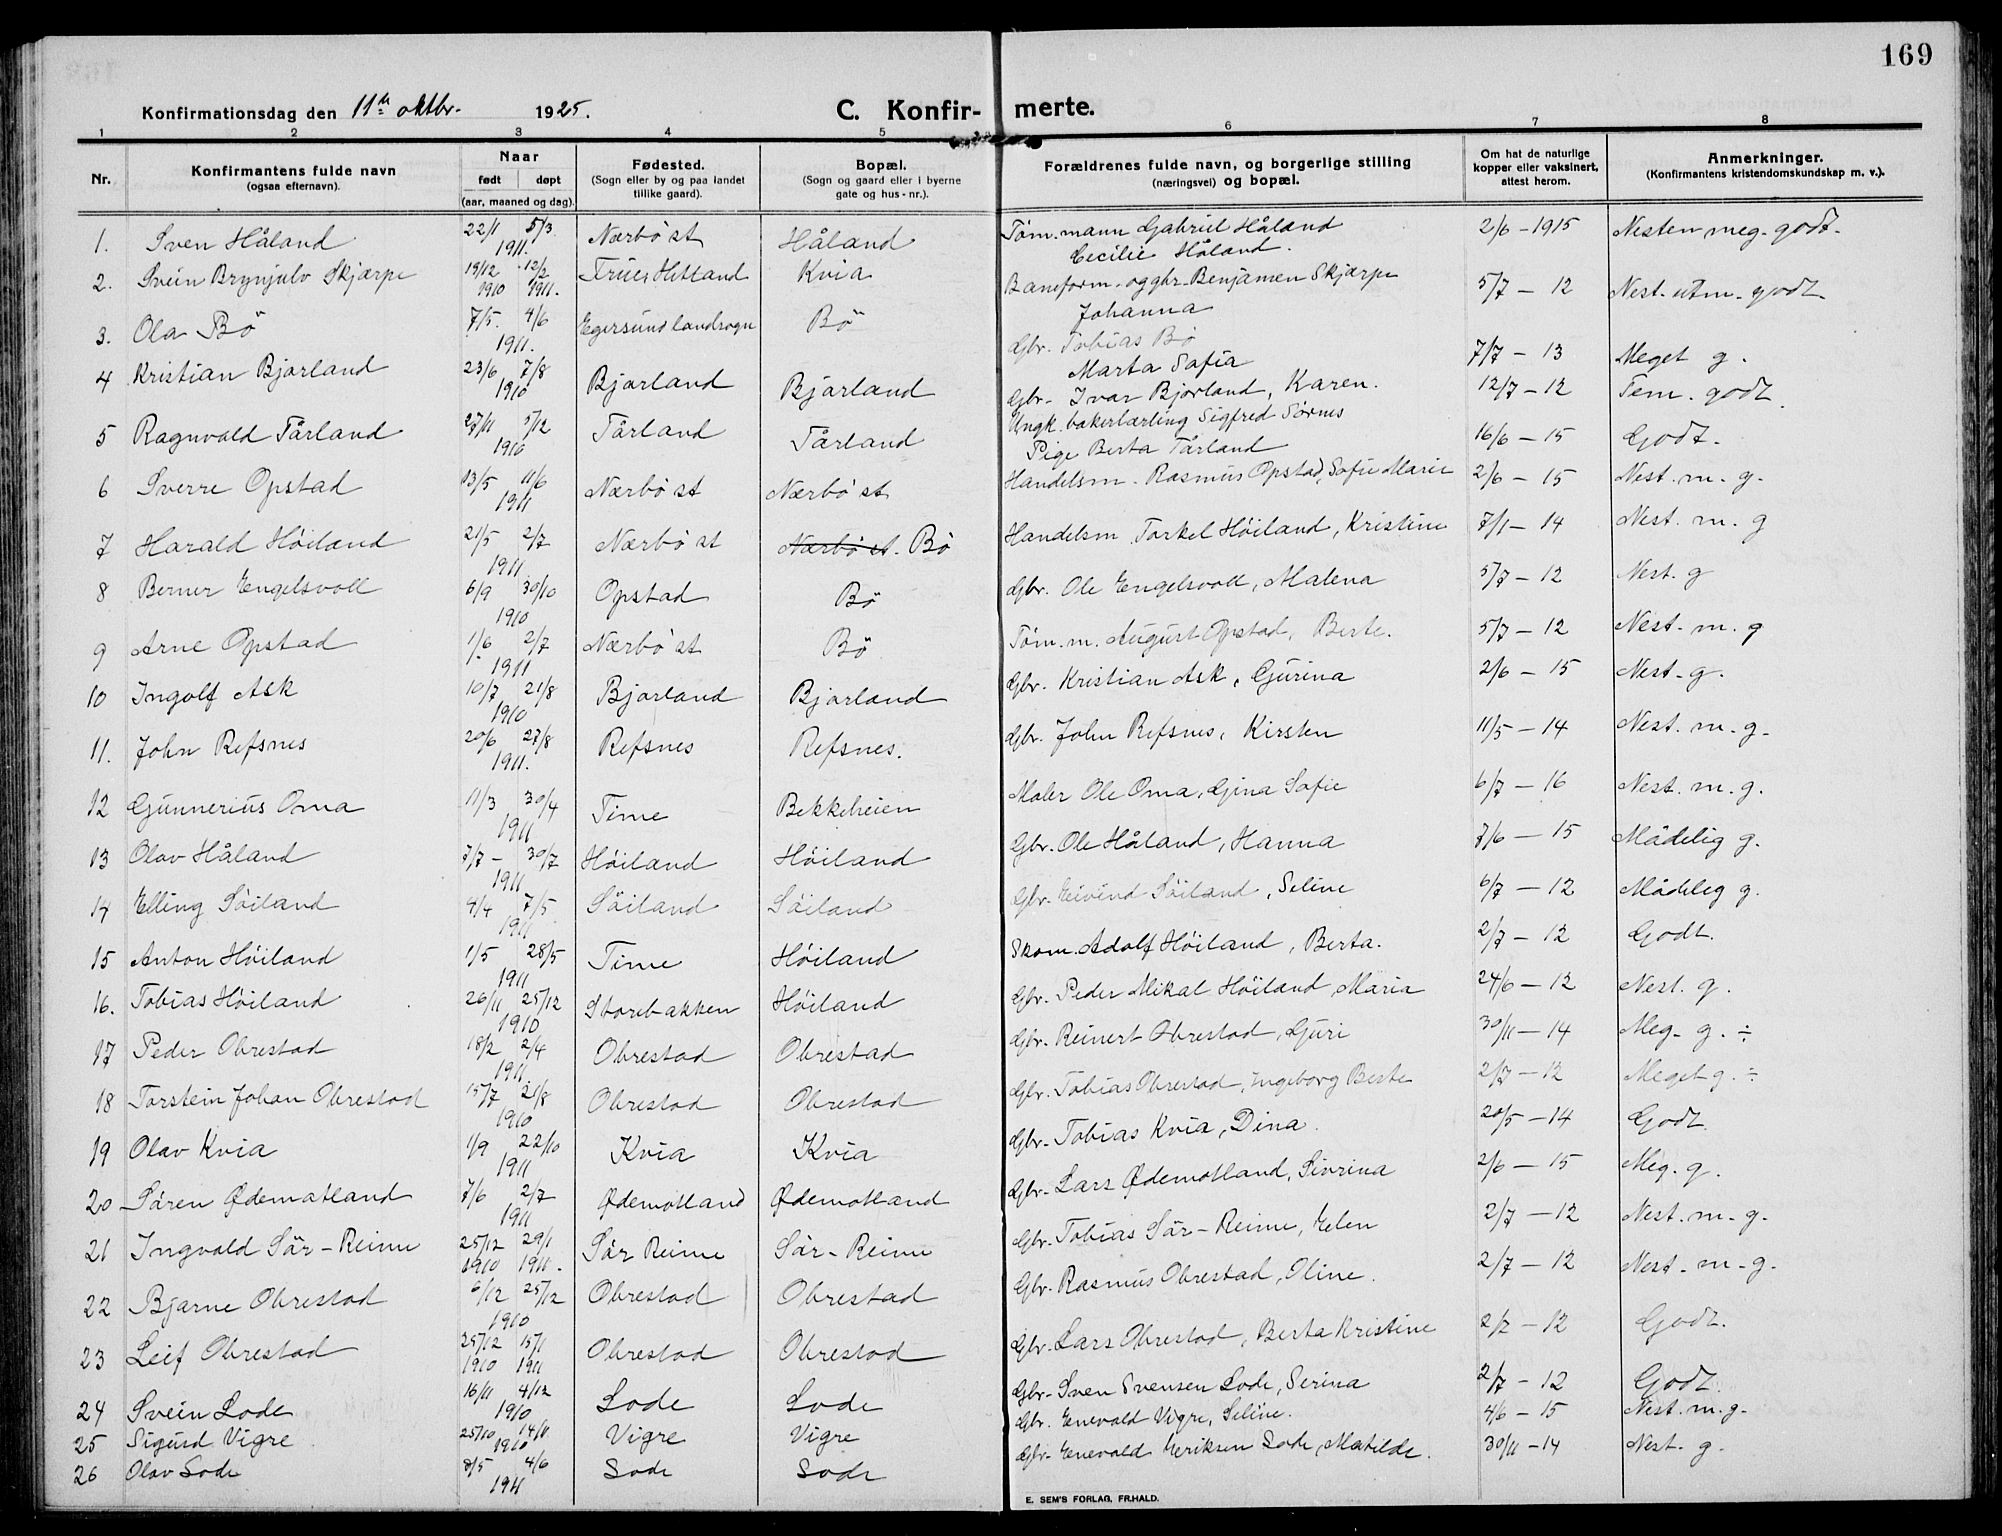 169
Konfirmationsdag den 11te oktbr. 1925. C. Konfirmerte.
1 2 3 4 5 6 7 8
Nr. Konfirmantens fulde navn (ogsaa efternavn). Naar født døpt (aar, maaned og dag). Fødested. (Sogn eller by og paa landet tillike gaard). Bopæl. (Sogn og gaard eller i byerne gate og hus-nr.). Forældrenes fulde navn, og borgerlige stilling (næringsvei) og bopæl. Om hat de naturlige kopper eller vaksinert, attest herom. Anmerkninger. (Konfirmantens kristendomskundskap m. v.).
1. Sven Håland 22/1 5/3 1911. Nærbö st Håland Töm.mann Gabriel Håland Cecilie Håland. 2/6 - 1915 Nesten meg. godt.
2. Svein Brynjulv Skjærpe 19/12 1910 12/2 1911. Kvia Baneform. og gbr. Benjamen Skjærpe Johanna 5/7 - 12 Nest. utm. godt
3. Ola Bö 7/5. 4/6 1911. Egersund landsogn Bö Gbr. Tobias Bö Marta Safia 7/7 - 13 Meget g.
4 Kristian Bjorland 23/6 7/8 1910 Bjorland Bjorland Gbr. Ivar Bjorland, Karen. 12/7 - 12 Tem. godt
5 Ragnvald Tårland 27/11 5/12 1910 Tårland Tårland Ungk. bakerlærling Sigfred Sörnes Pige Berta Tårland 16/6 - 15 Godt.
6 Sverre Opstad 13/5 11/6 1911 Nærbö st Nærbö st Handelsm. Rasmus Opstad, Sofie Marie 2/6 - 15 Nest. m. g.
7 Harald Höiland 21/5 2/7 1911 Nærbö st Nærbö st. Bö Handelsm Torkel Höiland, Kristine 7/1 - 14 Nest. m. g
8 Berner Engelsvoll 6/9 30/10 1910 Opstad Bö Gbr. Ole Engelsvoll, Malena 5/7 - 12 Nest. g
9 Arne Opstad 1/6 2/7 1911 Nærbö st Bö Töm. m. August Opstad, Berte. 5/7 - 12 Nest. m. g
10 Ingolf Ask 10/7 21/8 1910 Bjorland Bjorland Gbr. Kristian Ask, Gurina 2/6 - 15 Nest. g.
11. John Refsnes 20/6 27/8 1911. Refsnes Refsnes. Gbr. John Refsnes, Kirsten 11/5 - 14 Nest. m. g.
12 Gunnerius Oma 11/3 30/4 1911 Time Bekkeheien Maler Ole Oma, Gina Sofie 6/7 - 16 Nest. m. g.
13 Olav Håland 7/7 - 30/7 1911 Höiland Höiland Gbr. Ole Håland, Hanna 7/6 - 15 Mådelig g.
14 Elling Söiland 4/4 7/5 1911 Söiland Söiland Gbr. Eivind Söiland, Seline 6/7 - 12 Mådeleg g.
15 Anton Höiland 1/5 28/5 1911 Time Höiland Skom. Adolf Höiland, Berta. 2/7 - 12 Godt.
16. Tobias Höiland 26/11 25/12 1910 Storebakken Höiland Gbr. Peder Mikal Höiland, Maria 24/6 - 12 Nest. g.
17 Peder Obrestad 18/2 2/4 1911 Obrestad Obrestad Gbr. Reinert Obrestad, Guri 30/11 - 14 Meg. g. ÷
18 Torstein Johan Obrestad 15/7 21/8 1910 Obrestad Obrestad Gbr. Tobias Obrestad, Ingeborg Berte 2/7 - 12 Meget g. ÷
19 Olav Kvia 1/9 22/10 1911 Kvia Kvia Gbr. Tobias Kvia, Dina. 20/5 - 14 Godt
20 Sören Ødemotland 7/6 2/7 1911 Ødemotland Ødemotland Gbr. Lars Ødemotland, Sivrina 2/6 - 15 Meg. g.
21 Ingvald Sör-Reime 25/12 1910 29/1 1911. Sör Reime Sör-Reime Gbr. Tobias Sör-Reime, Helen 2/7 - 12 Nest. m. g.
22 Bjarne Obrestad 6/12 25/12 1910 Obrestad Obrestad Gbr. Rasmus Obrestad, Oline. 2/7 - 12 Nest. m. g.
23 Leif Obrestad 25/12 1910 15/1 1911 Obrestad Obrestad Gbr. Lars Obrestad, Berta Kristine 2/7 - 12 Godt.
24 Svein Lode 16/11 4/12 1910 Lode Lode Gbr. Sven Svensen Lode, Serina 2/7 - 12 Godt.
25 Sigurd Vigre 25/10 14/11 1910 Vigre Vigre Gbr. Enevald Vigre, Seline. 4/6 - 15 Nest. m. g.
26 Olav Lode 8/5 4/6 1911 Lode Lode Gbr. Enevald Eriksen Lode, Matilde. 30/11 - 14 Nest. g.
E. SEM'S FORLAG, FR.HALD.